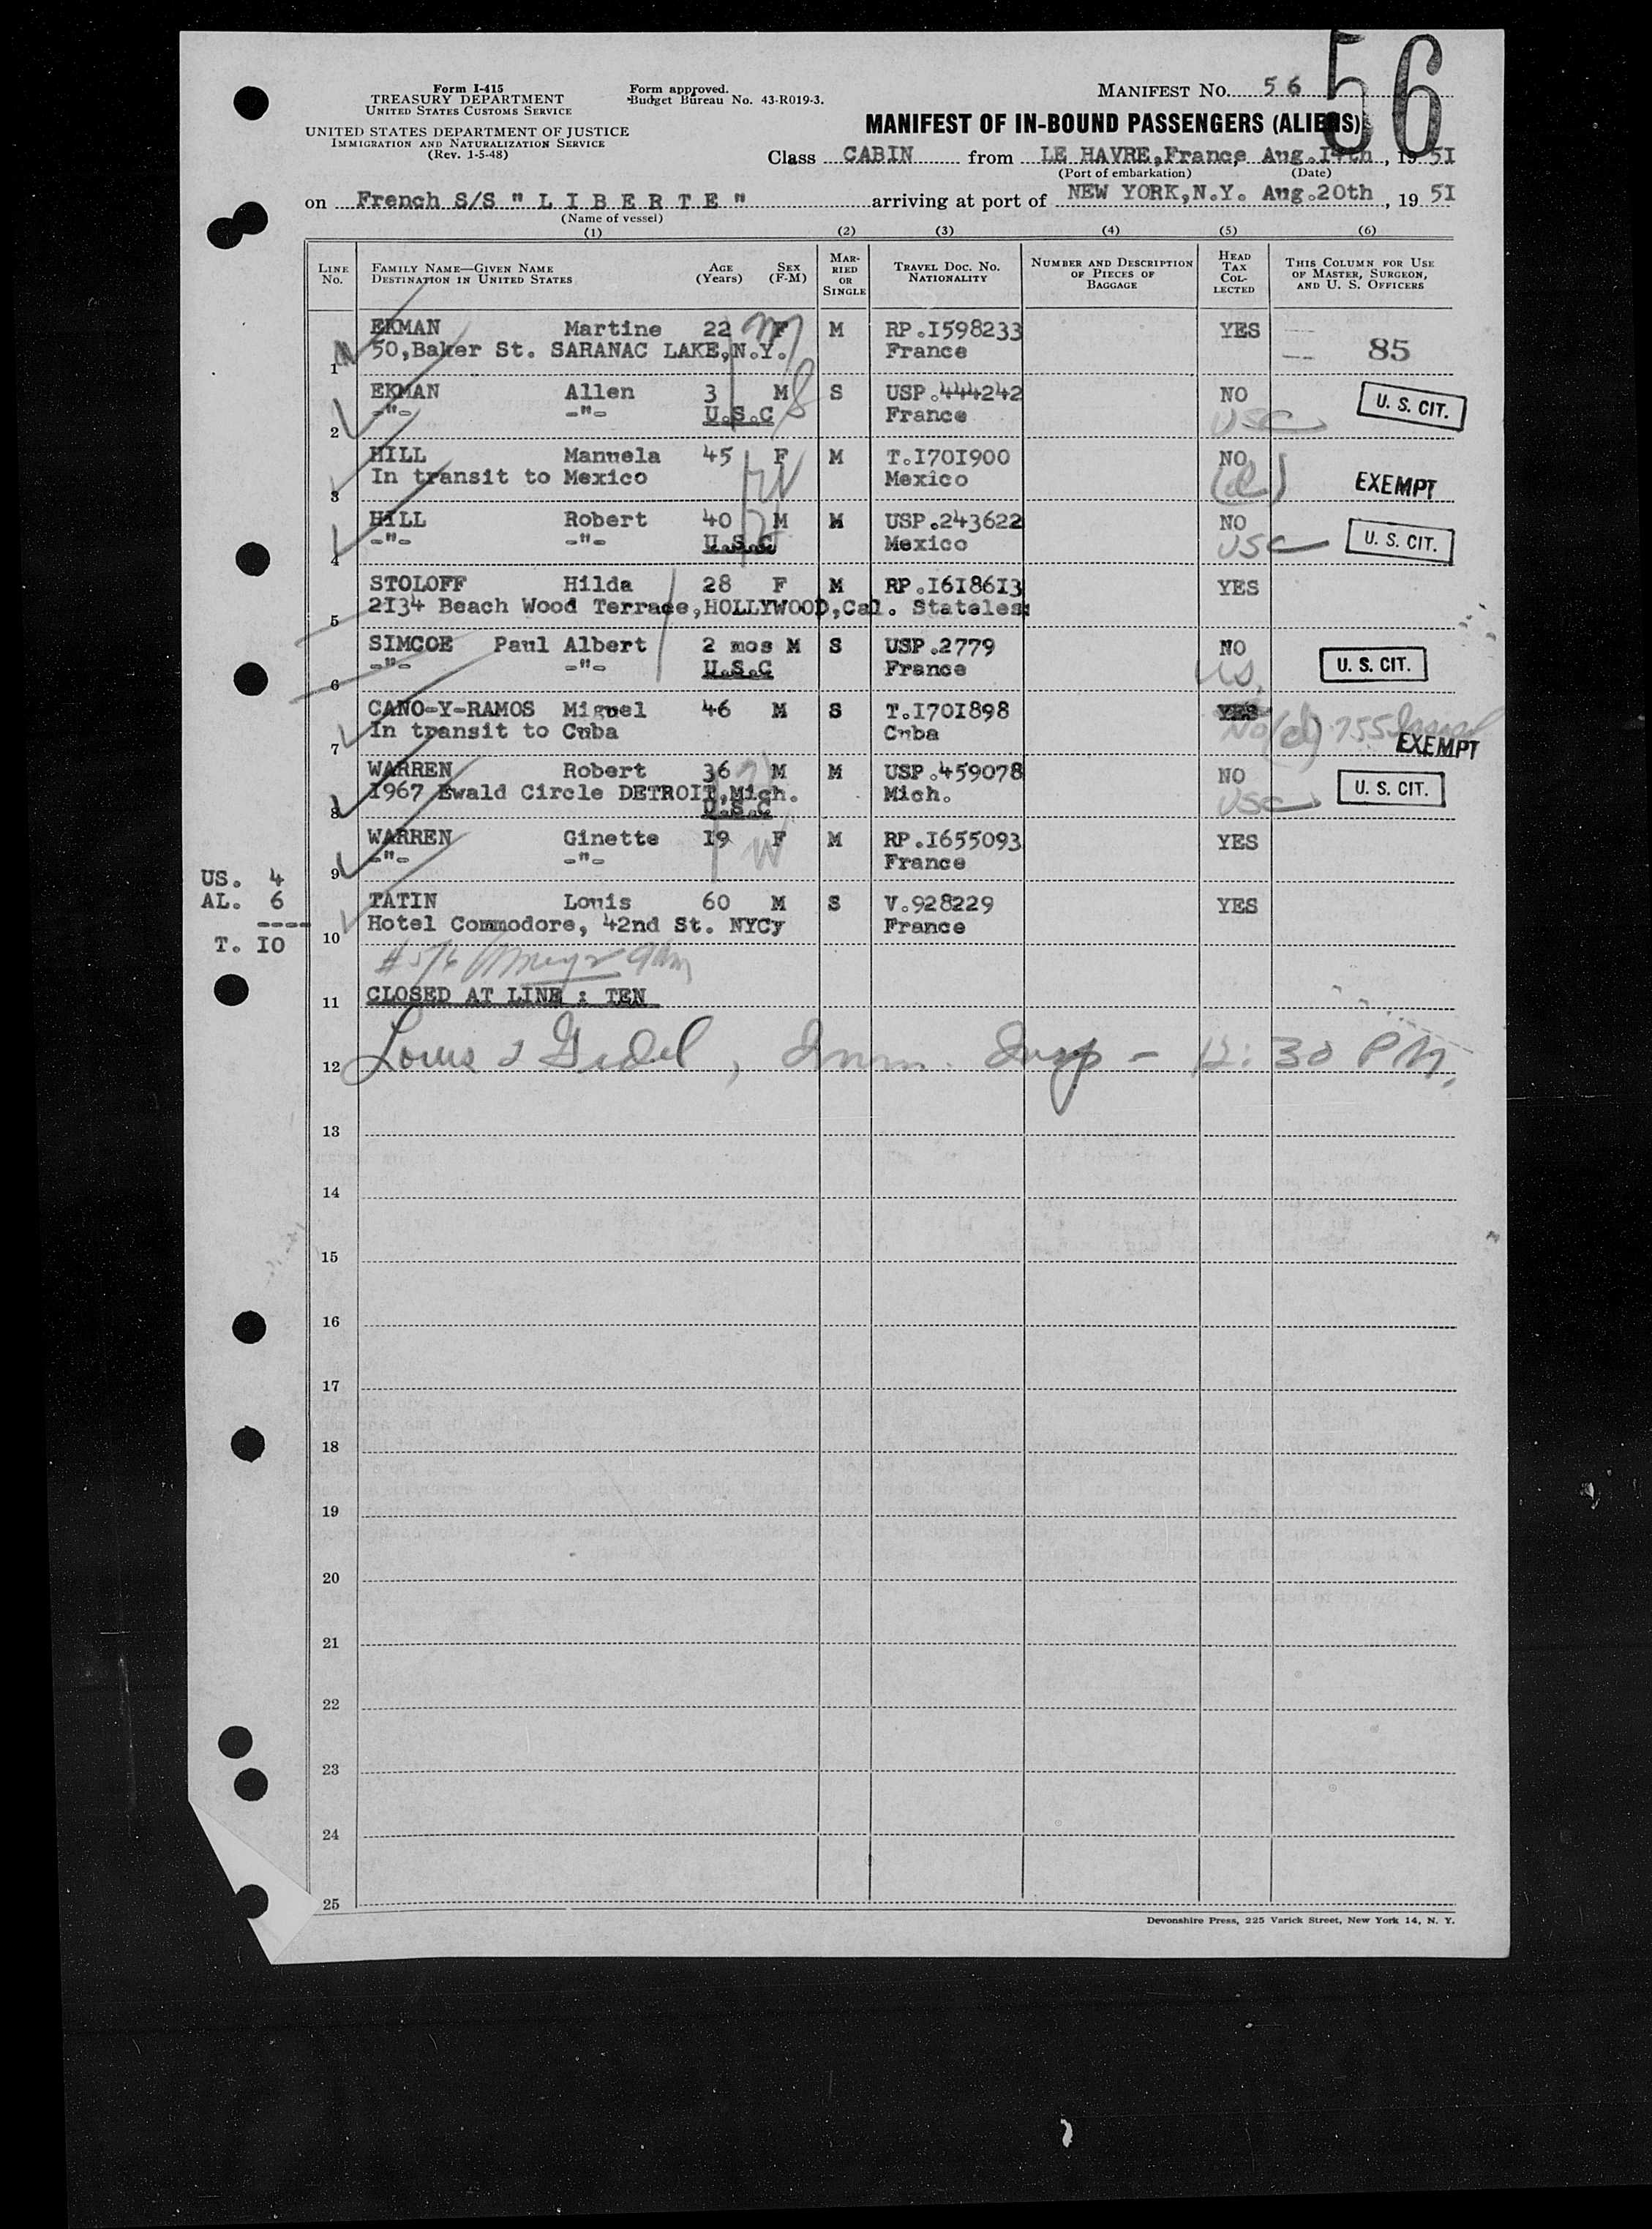 56
Form I-415
TREASURY DEPARTMENT
UNITED STATES CUSTOMS SERVICE
UNITED STATES DEPARTMENT OF JUSTICE
IMMIGRATION AND NATURALIZATION SERVICE
(Rev. 1-5-48)
Form approved.
Budget Bureau No. 43-R019-3.
MANIFEST NO. 56
MANIFEST OF IN-BOUND PASSENGERS (ALIENS)
Class CABIN from LE HAVRE,France, Aug.14th, 1951
(Port of embarkation) (Date)
on French S/S " L I B E R T E " arriving at port of NEW YORK,N.Y. Aug.20th, 1951
(Name of vessel)
(1) (2) (3) (4) (5) (6)
LINE NO. FAMILY NAME—GIVEN NAME DESTINATION IN UNITED STATES AGE (Years) SEX (F-M) MARRIED OR SINGLE TRAVEL DOC. NO. NATIONALITY NUMBER AND DESCRIPTION OF PIECES OF BAGGAGE HEAD TAX COLLECTED THIS COLUMN FOR USE OF MASTER, SURGEON, AND U. S. OFFICERS
EKMAN Martine 22 F M RP.I598233 YES
1 50,Baker St. SARANAC LAKE,N.Y. France 85
EKMAN Allen 3 M S USP.444242 NO U. S. CIT.
2 -"- -"- U.S.C France USC
HILL Manuela 45 F M T.I70I900 NO
3 In transit to Mexico Mexico EXEMPT
HILL Robert 40 M M USP.243622 NO
4 -"- -"- U.S.C Mexico USC U. S. CIT.
STOLOFF Hilda 28 F M RP.I6I86I3 YES
5 2I34 Beach Wood Terrace,HOLLYWOOD,Cal. Stateless
SIMCOE Paul Albert 2 mos M S USP.2779 NO
6 -"- -"- U.S.C France US. U. S. CIT.
CANO-Y-RAMOS Miguel 46 M S T.I70I898 YES
7 In transit to Cuba Cuba No EXEMPT
WARREN Robert 36 M M USP.459078 NO
8 I967 Ewald Circle DETROIT,Mich. Mich. USC U. S. CIT.
U.S.C
WARREN Ginette I9 F M RP.I655093 YES
9 -"- -"- France
TATIN Louis 60 M S V.928229 YES
10 Hotel Commodore, 42nd St. NYCy France
US. 4
AL. 6
----
T. IO
11 CLOSED AT LINE : TEN
12 Louis Imm. Insp - 12:30 PM.
13
14
15
16
17
18
19
20
21
22
23
24
25
Devonshire Press, 225 Varick Street, New York 14, N. Y.